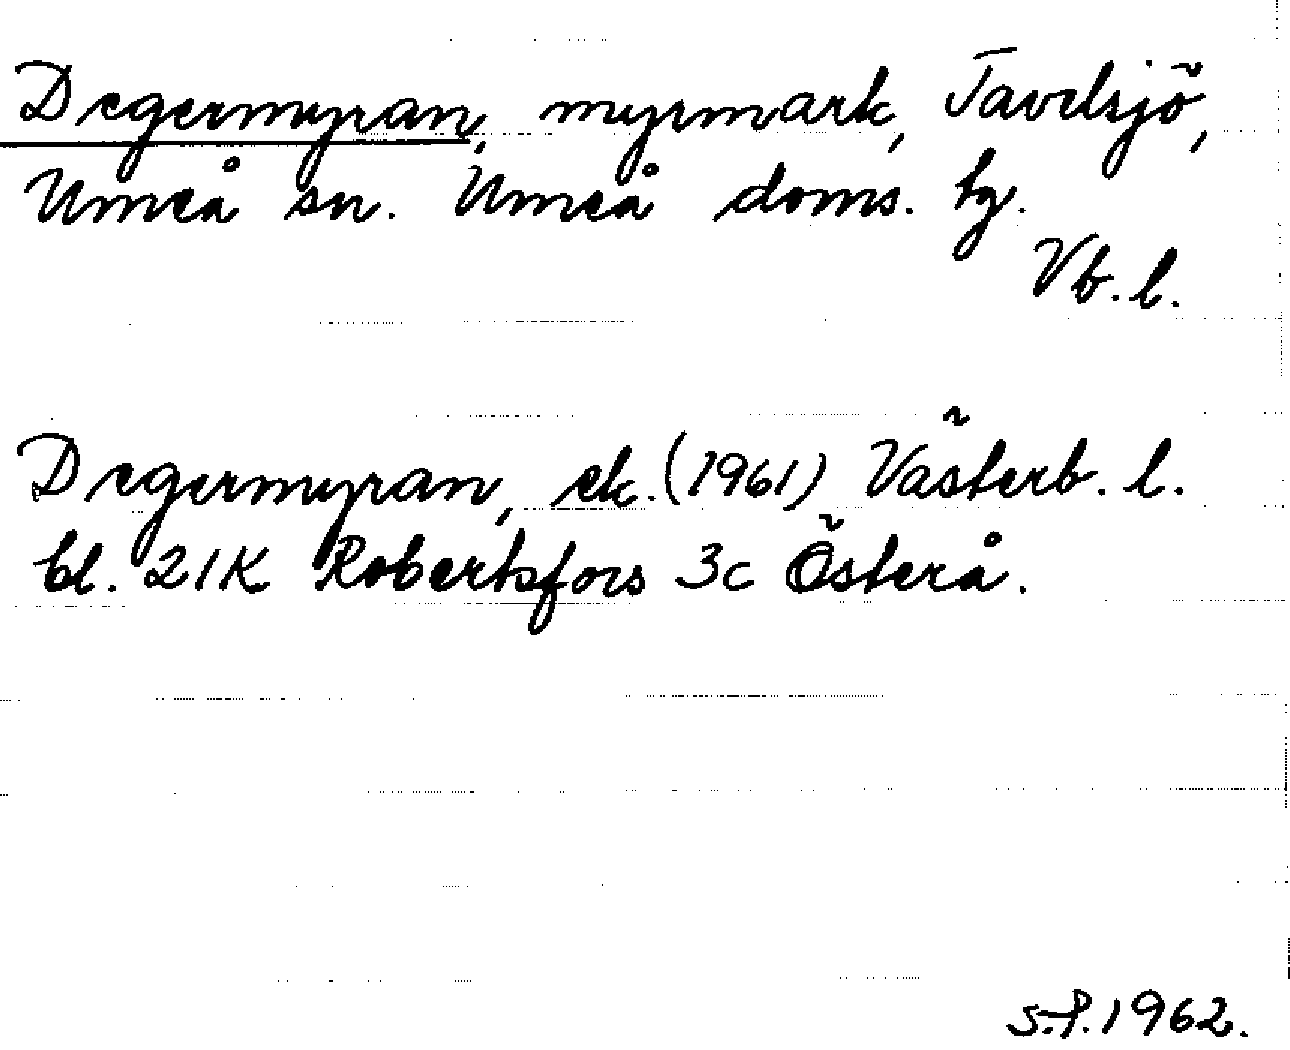 Degermyran, myrmark, Tavelsjö,
Umeå sn. Umeå doms. hg.
Vb. l.
Degermyran, ek. (1961) Västerb. l.
bl. 21K Robertsfors 3c Österå.
S.P. 1962.